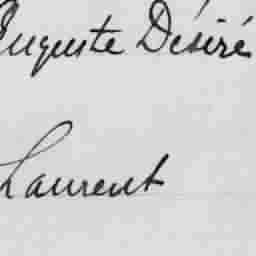 Auguste Désiré
Laurent